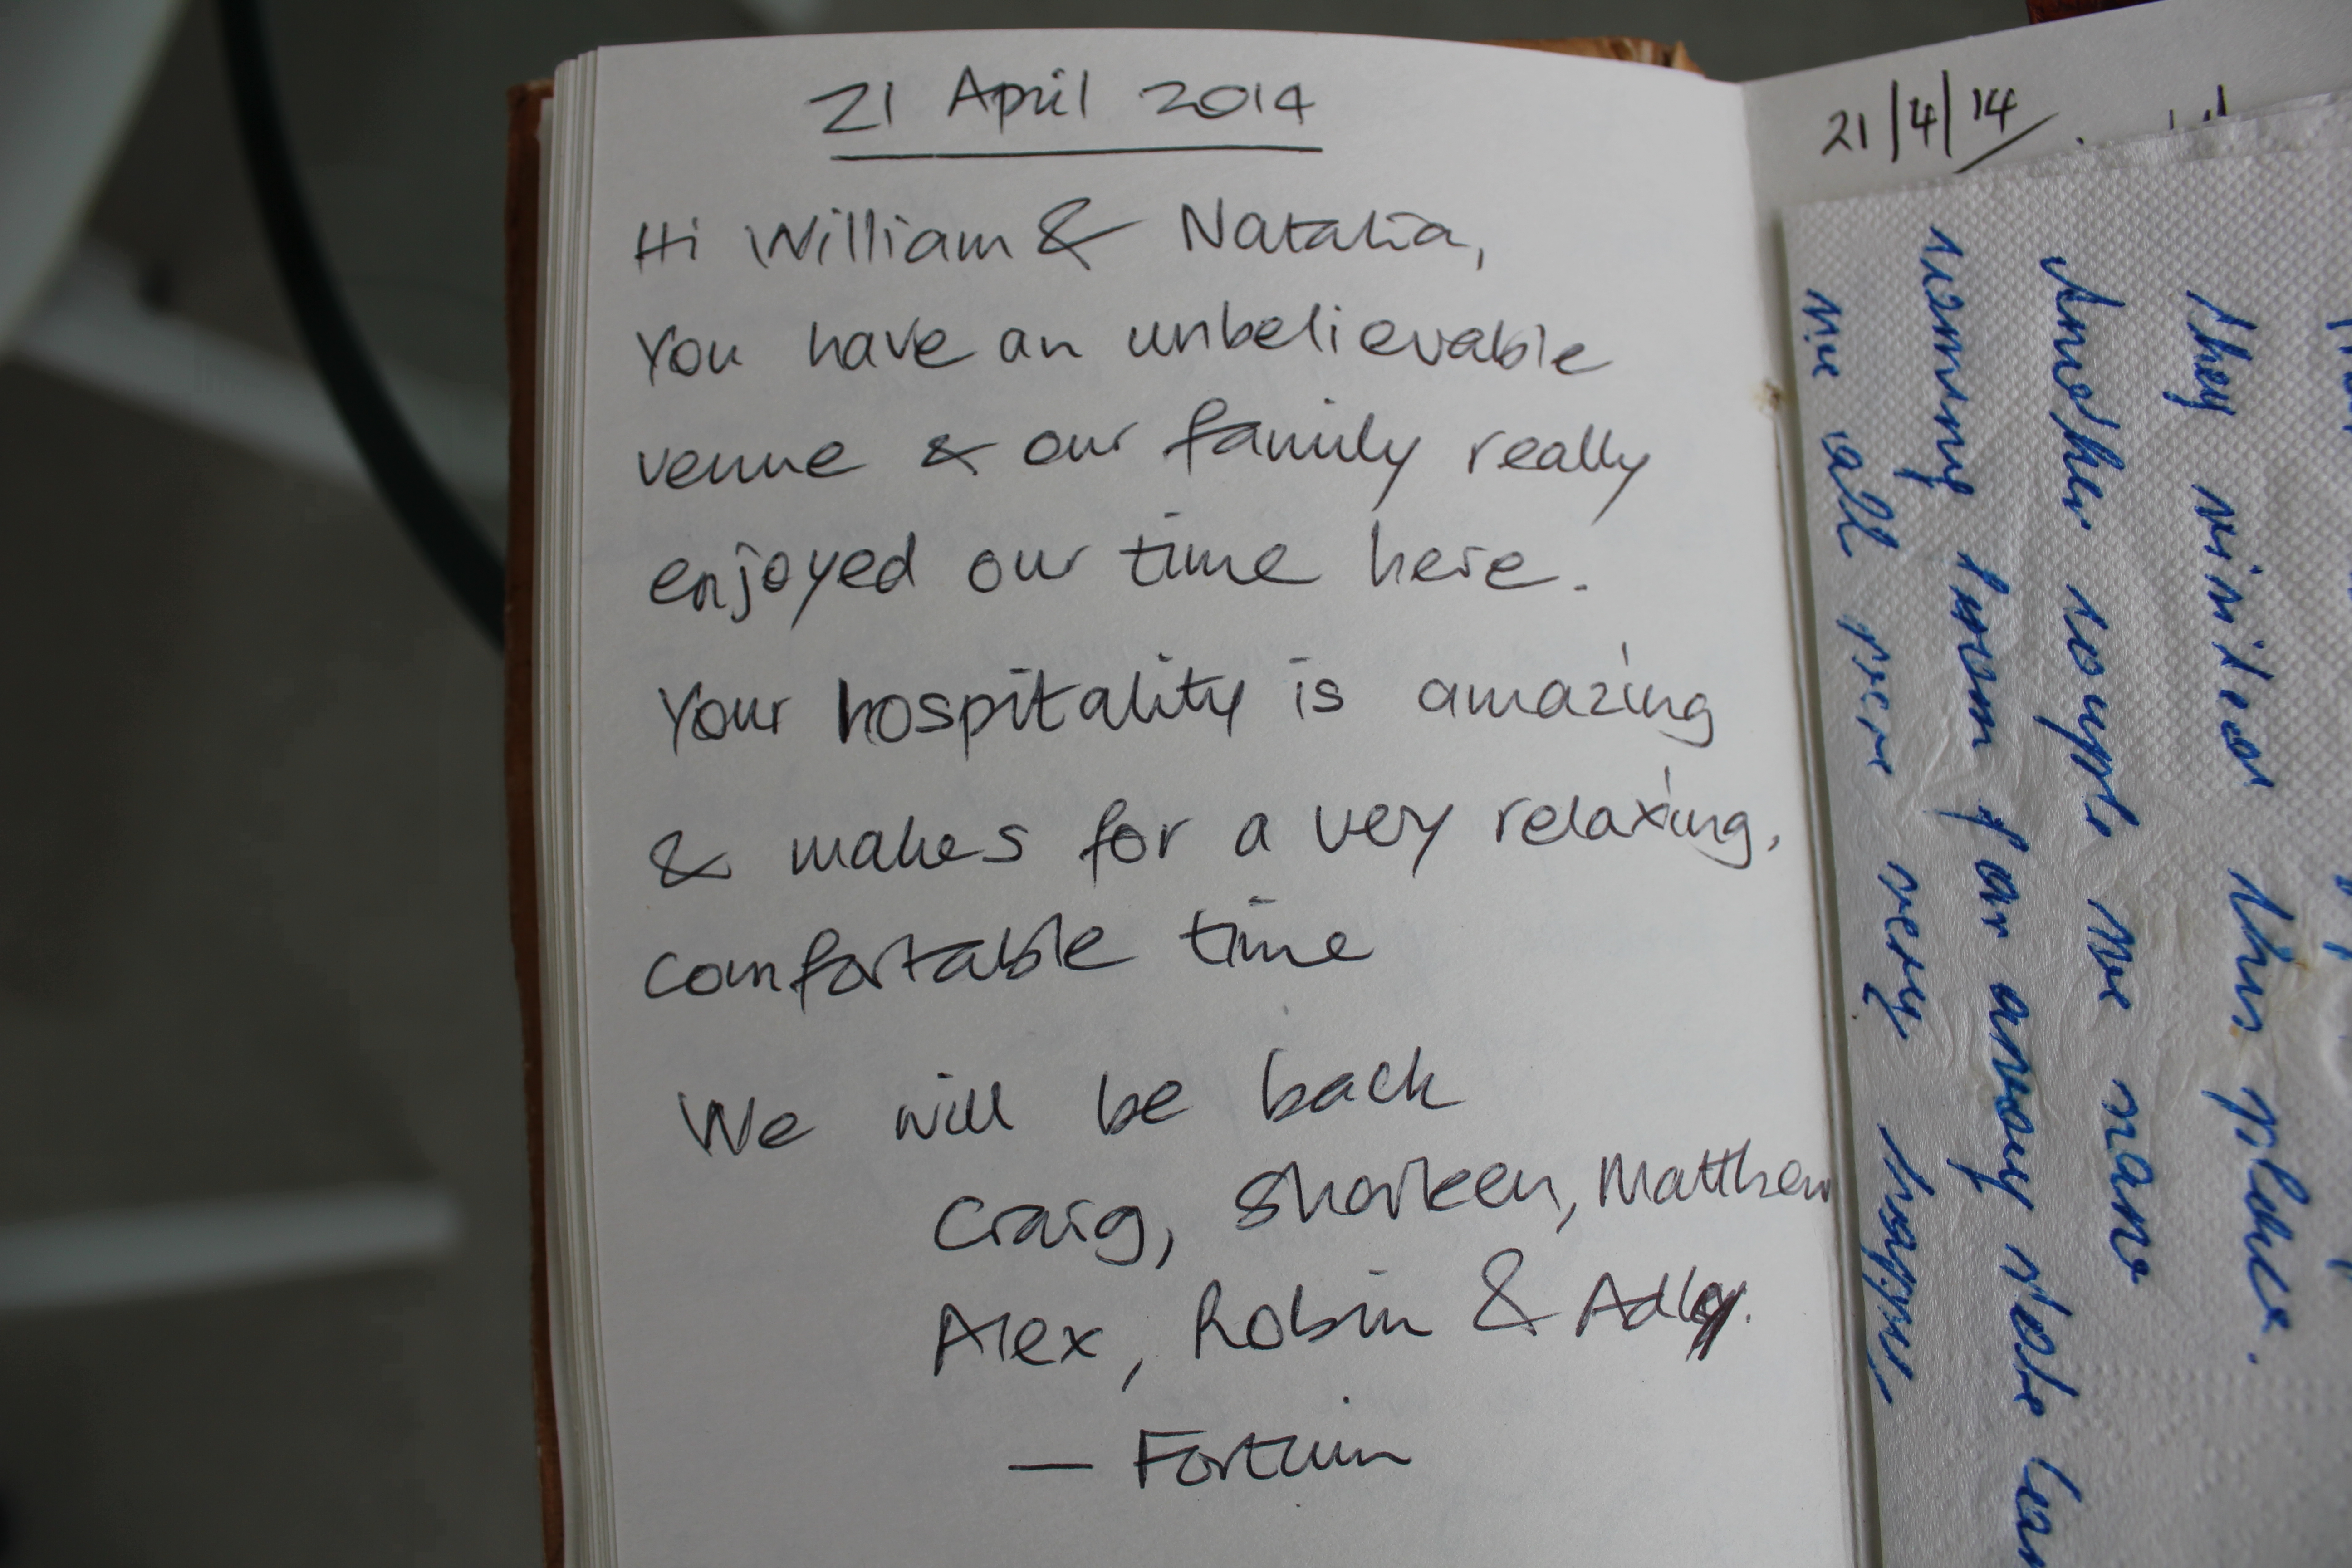 21 April 2014
Hi William & Natalia,
You have an unbelievable
venue & our family really
enjoyed our time here.
Your hospitality is amazing
& makes for a very relaxing,
comfortable time
We will be back
Craig, Sharleen, Matthew
Alex, Robin & Adly.
— Fortuin
21/4/14
They visited this place.
Another couple we
coming from far away
we all were very happy,